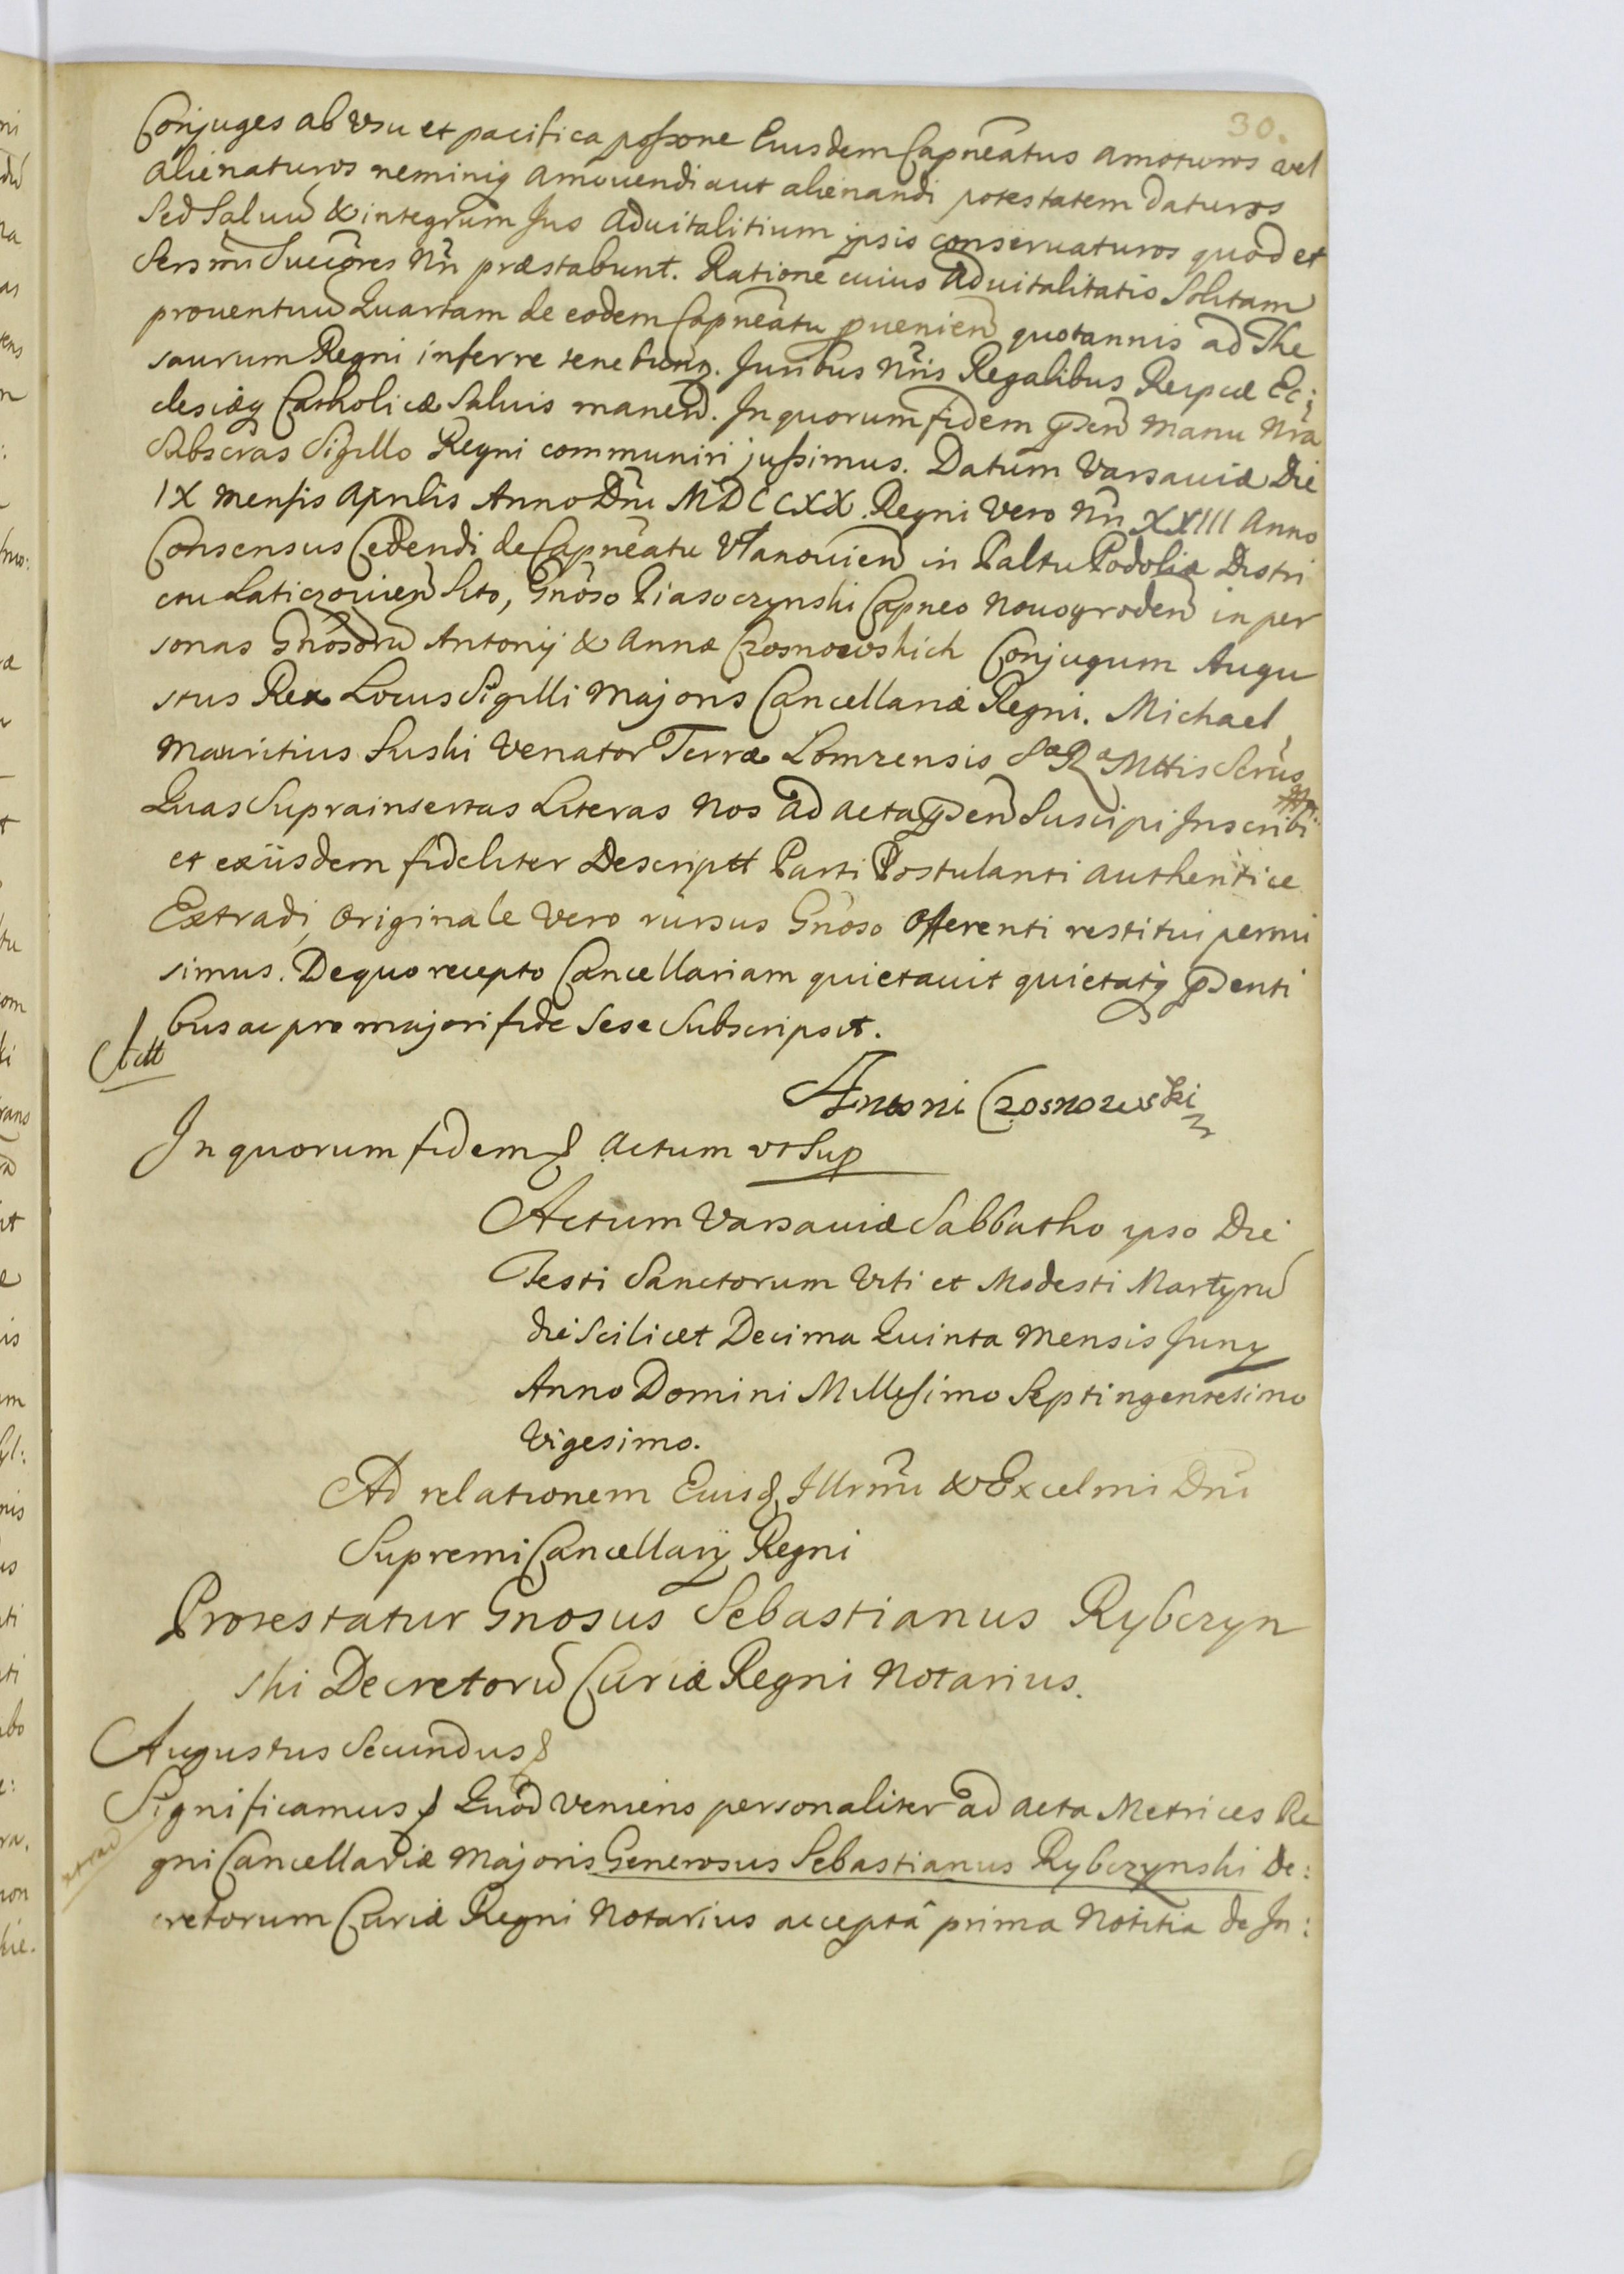 30.
Conjuges ab usu et pacifica possone Eiusdem Capneatus amoturos vel
alienaturos neminiq amouendi aut alienandi potestatem daturos
Sed Saluu & integrum Jus aduitalitium ipsis conseruaturos quod et
Sersmi Succores Nri præstabunt. Ratione cuius aduitalitatis Solitam
prouentuu Quartam de eodem Capneatu puenien quotannis ad The
saurum Regni inferre tenebunt. Juribus Nris Regalibus Reipcæ Ec:
clesiæq Catholicæ Saluis manen. In quorum fidem psen manu Nra
Subscras Sigillo Regni communiri jussimus. Datum Varsauiæ Die
IX mensis Aprilis Anno Dni MDCCXX. Regni Vero Nri XXIII Anno
Consensus Cedendi de Capneatu Vlanouien in Paltu Podoliæ Distri
ctu Laticzouien Sito, Gnoso Piasoczynski Capneo Nouogroden in per
sonas Gnosoru Antonij & Annæ Czosnowskich Conjugum Augu
stus Rex Locus Sigilli Majoris Cancellariæ Regni. Michael
Mauritius Suski Venator Terræ Lomzensis Sæ Ræ Mttis Scrius
Quas Suprainsertas Literas Nos ad acta psen Suscipi Inscribi
et exiisdem fideliter Descriptt Parti Postulanti authentice
Extradi, Originale Vero rursus Gnoso Offerenti restitui permi
simus. De quo recepto Cancellariam quietauit quietatq psenti
bus ac pro majori fide Sese Subscripsit.
Antoni Czosnowski
In quorum fidem & Actum vt Sup
Actum Varsauiæ Sabbatho ipso Die
Festi Sanctorum Viti et Modesti Martyru
die Scilicet Decima Quinta Mensis Juny
Anno Domini Millesimo Septingentesimo
Vigesimo.
Ad relationem Eiusd Illrmi & Excelmi Dni
Supremi Cancellarij Regni
Protestatur Gnosus Sebastianus Rybczyn
ski Decretoru Curiæ Regni Notarius.
Augustus Secundus &
Significamus & Quod veniens personaliter ad acta Metrices Re
gni Cancellariæ Majoris Generosus Sebastianus Rybczynski De:
cretorum Curiæ Regni Notarius acceptâ prima Notitia de In: